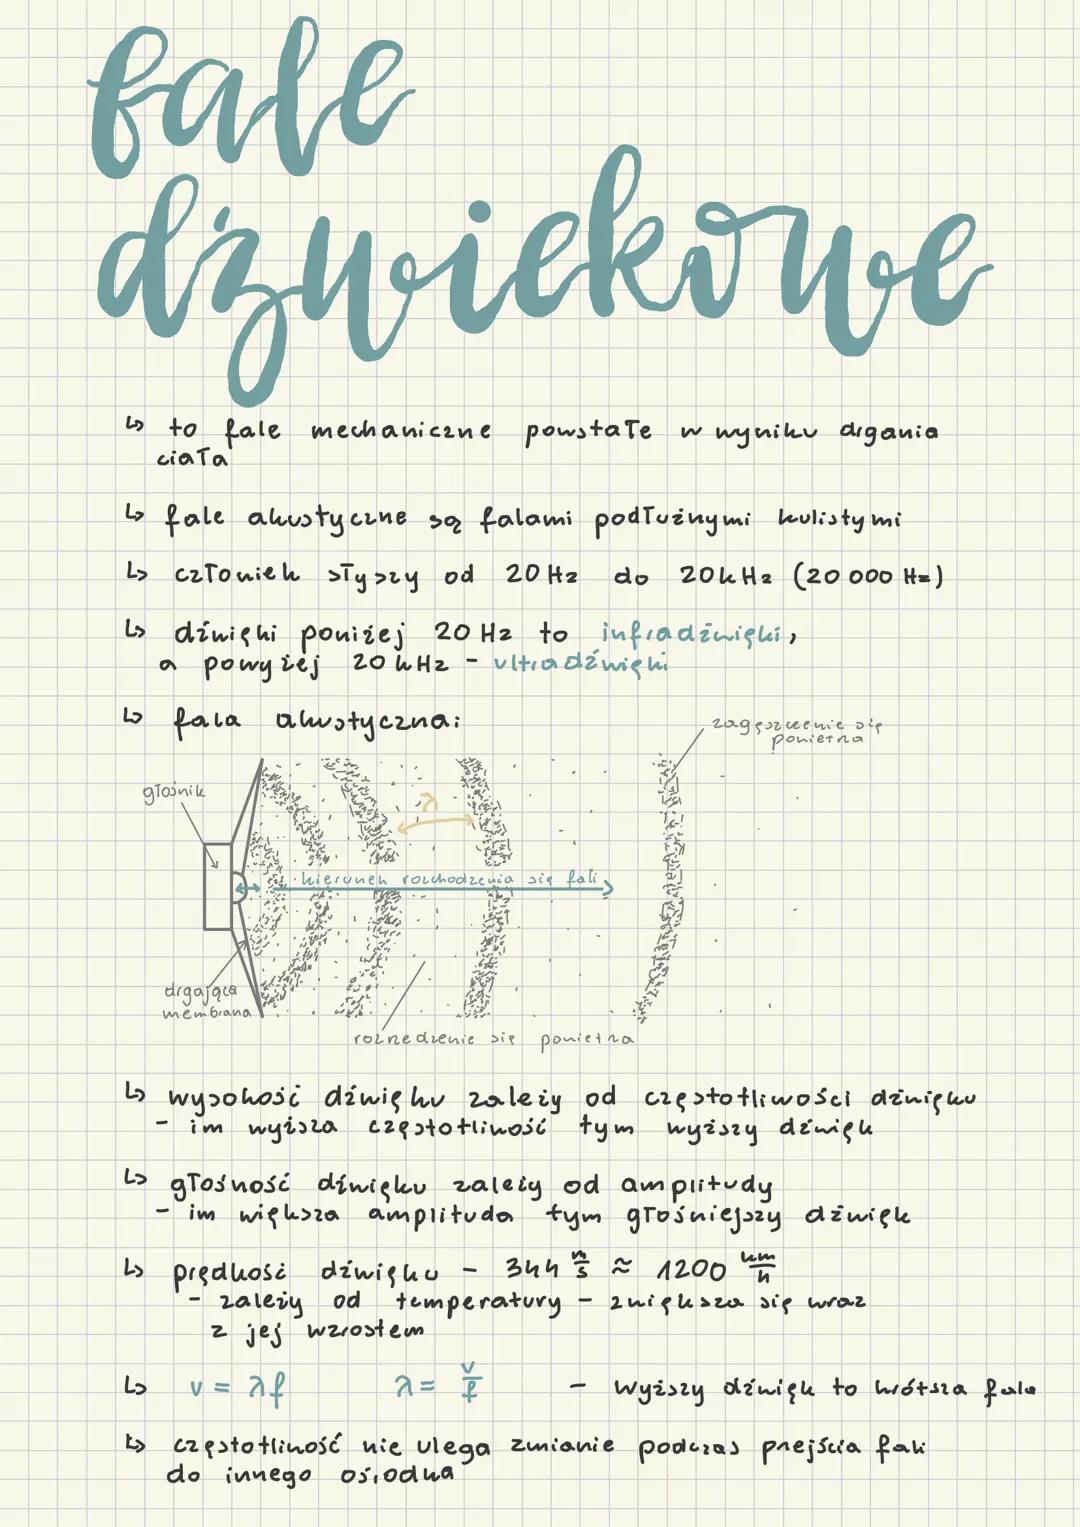 fale
dźwiękowe
↳ to fale mechaniczne powstałe w wyniku drgania
ciała
↳ fale akustyczne są falami podłużnymi kulistymi
↳ człowiek słyszy od 20 Hz do 20kHz (20 000 Hz)
↳ dźwięki poniżej 20 Hz to infradźwięki,
a powyżej 20 kHz - ultradźwięki
↳ fala akustyczna:
zagęszczenie się
powietrza
głośnik
λ
kierunek rozchodzenia się fali
drgająca
membrana
rozrzedzenie się powietrza
↳ wysokość dźwięku zależy od częstotliwości dźwięku
- im wyższa częstotliwość tym wyższy dźwięk
↳ głośność dźwięku zależy od amplitudy
- im większa amplituda tym głośniejszy dźwięk
↳ prędkość dźwięku - 344 m/s ≈ 1200 km/h
- zależy od temperatury - zwiększa się wraz
z jej wzrostem
↳ v = λf λ = v/f - wyższy dźwięk to krótsza fala
↳ częstotliwość nie ulega zmianie podczas przejścia fali
do innego ośrodka